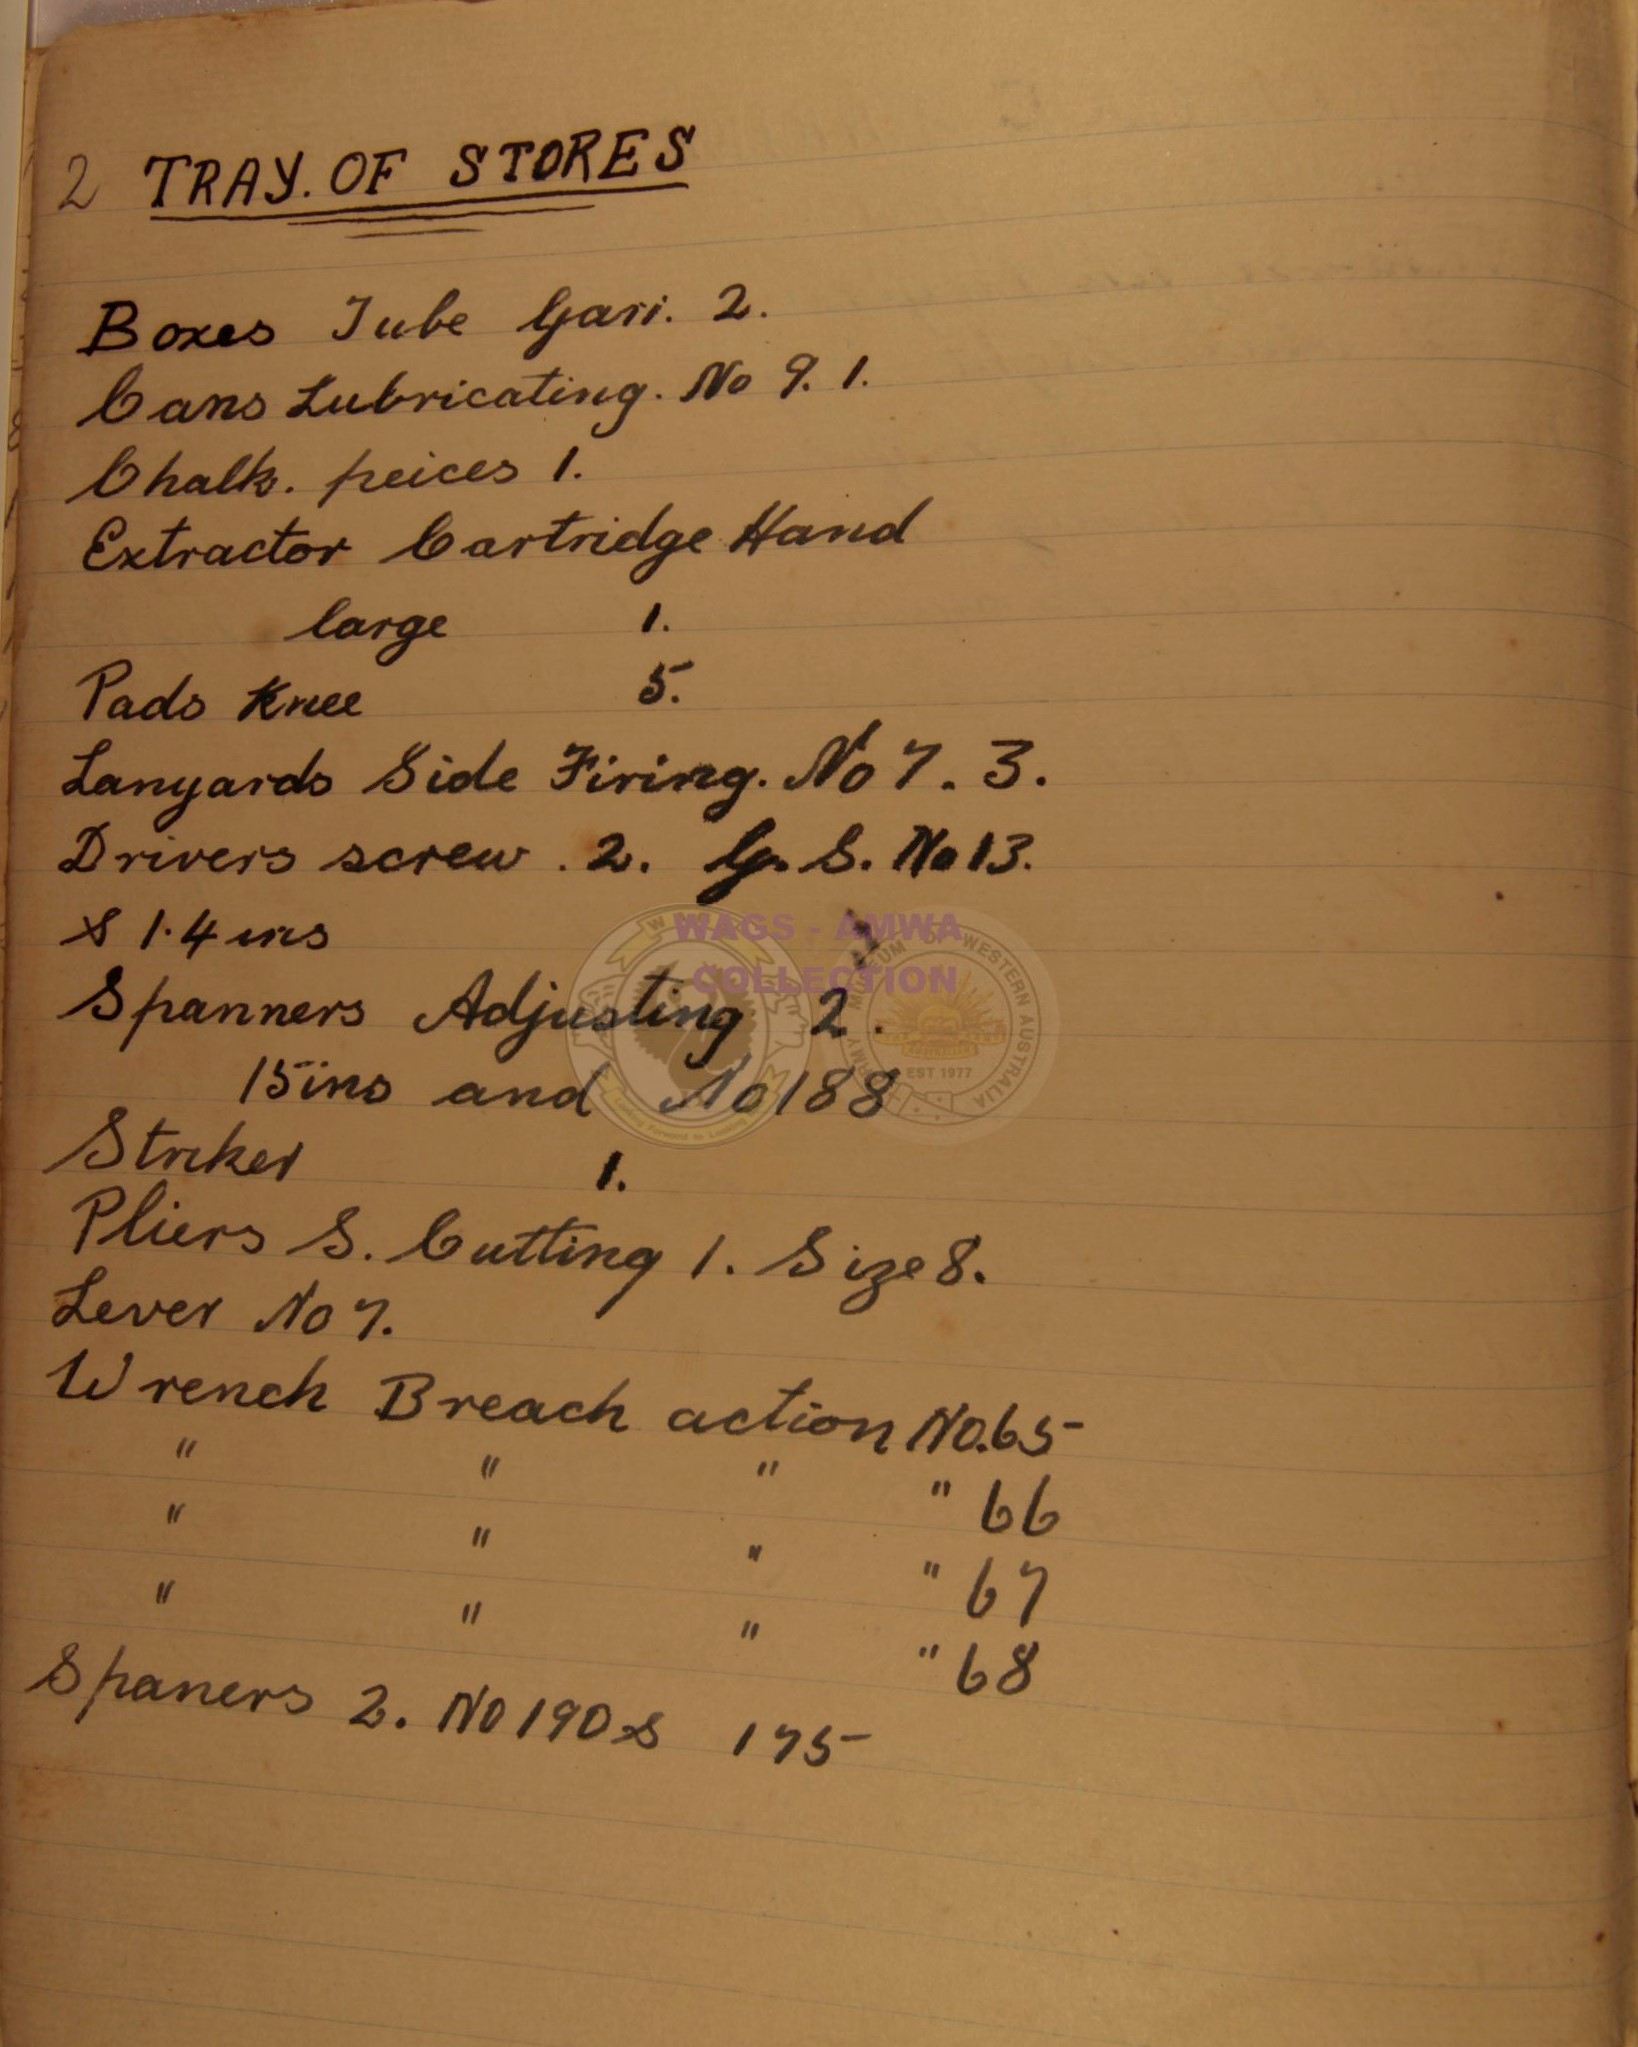 2 TRAY. OF STORES
Boxes Tube Garr. 2.
Cans Lubricating. No 9. 1.
Chalk. peices 1.
Extractor Cartridge Hand
large 1.
Pads Knee 5.
Lanyards Side Firing. No 7. 3.
Drivers screw . 2. G. S. No 13.
& 1.4 ins
WAGS - AMWA
COLLECTION
Spanners Adjusting 2.
15ins and No 188
EST 1977
Striker 1.
Pliers S. Cutting 1. Size 8.
Lever No 7.
Wrench Breach action No.65
" " " " 66
" " " " 67
" " " " 68
Spaners 2. No 190 & 175